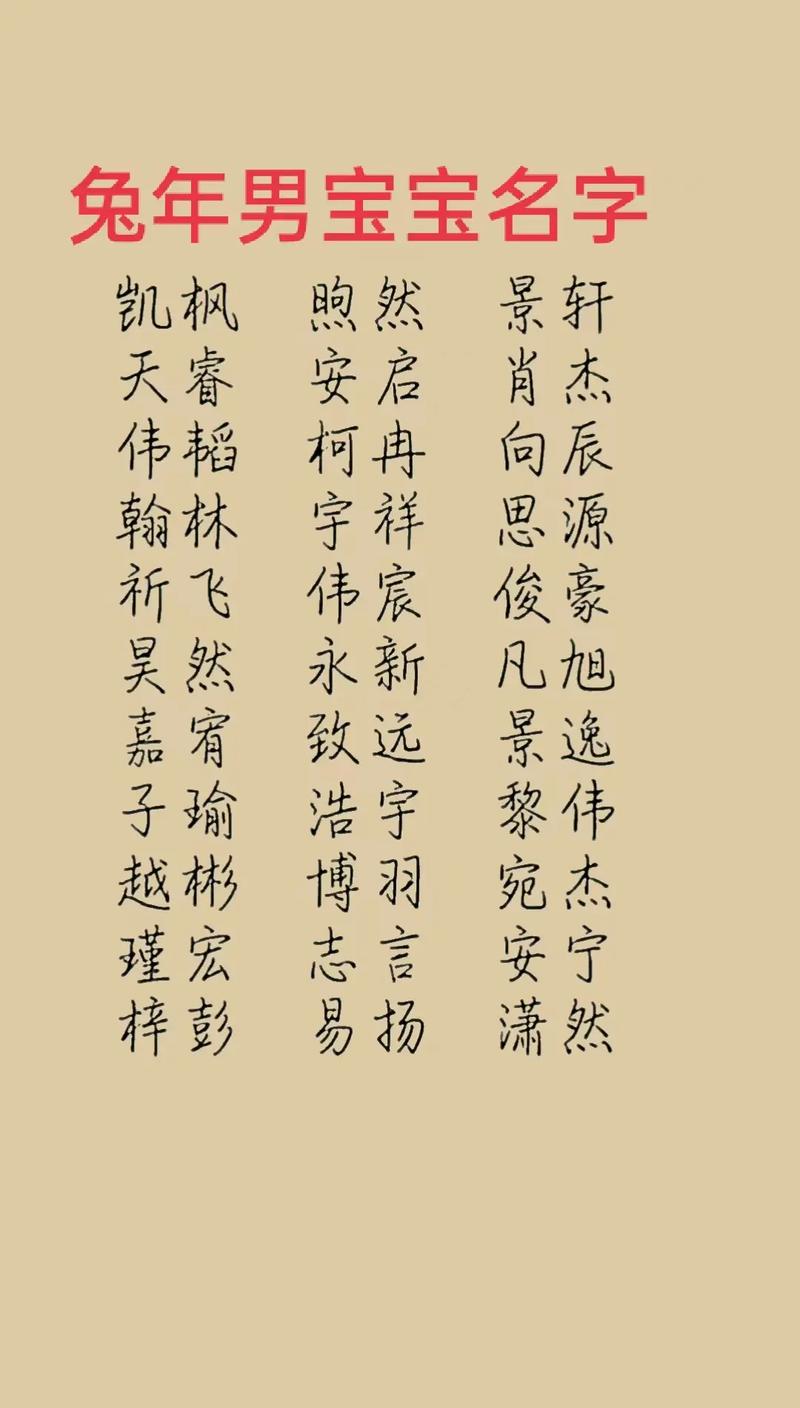 兔年男宝宝名字
凯枫 煦然 景轩
天睿 安启 肖杰
伟韬 柯冉 向辰
翰林 宇祥 思源
祈飞 伟宸 俊豪
昊然 永新 凡旭
嘉宥 致远 景逸
子瑜 浩宇 黎伟
越彬 博羽 宛杰
瑾宏 志言 安宁
梓彭 易扬 潇然